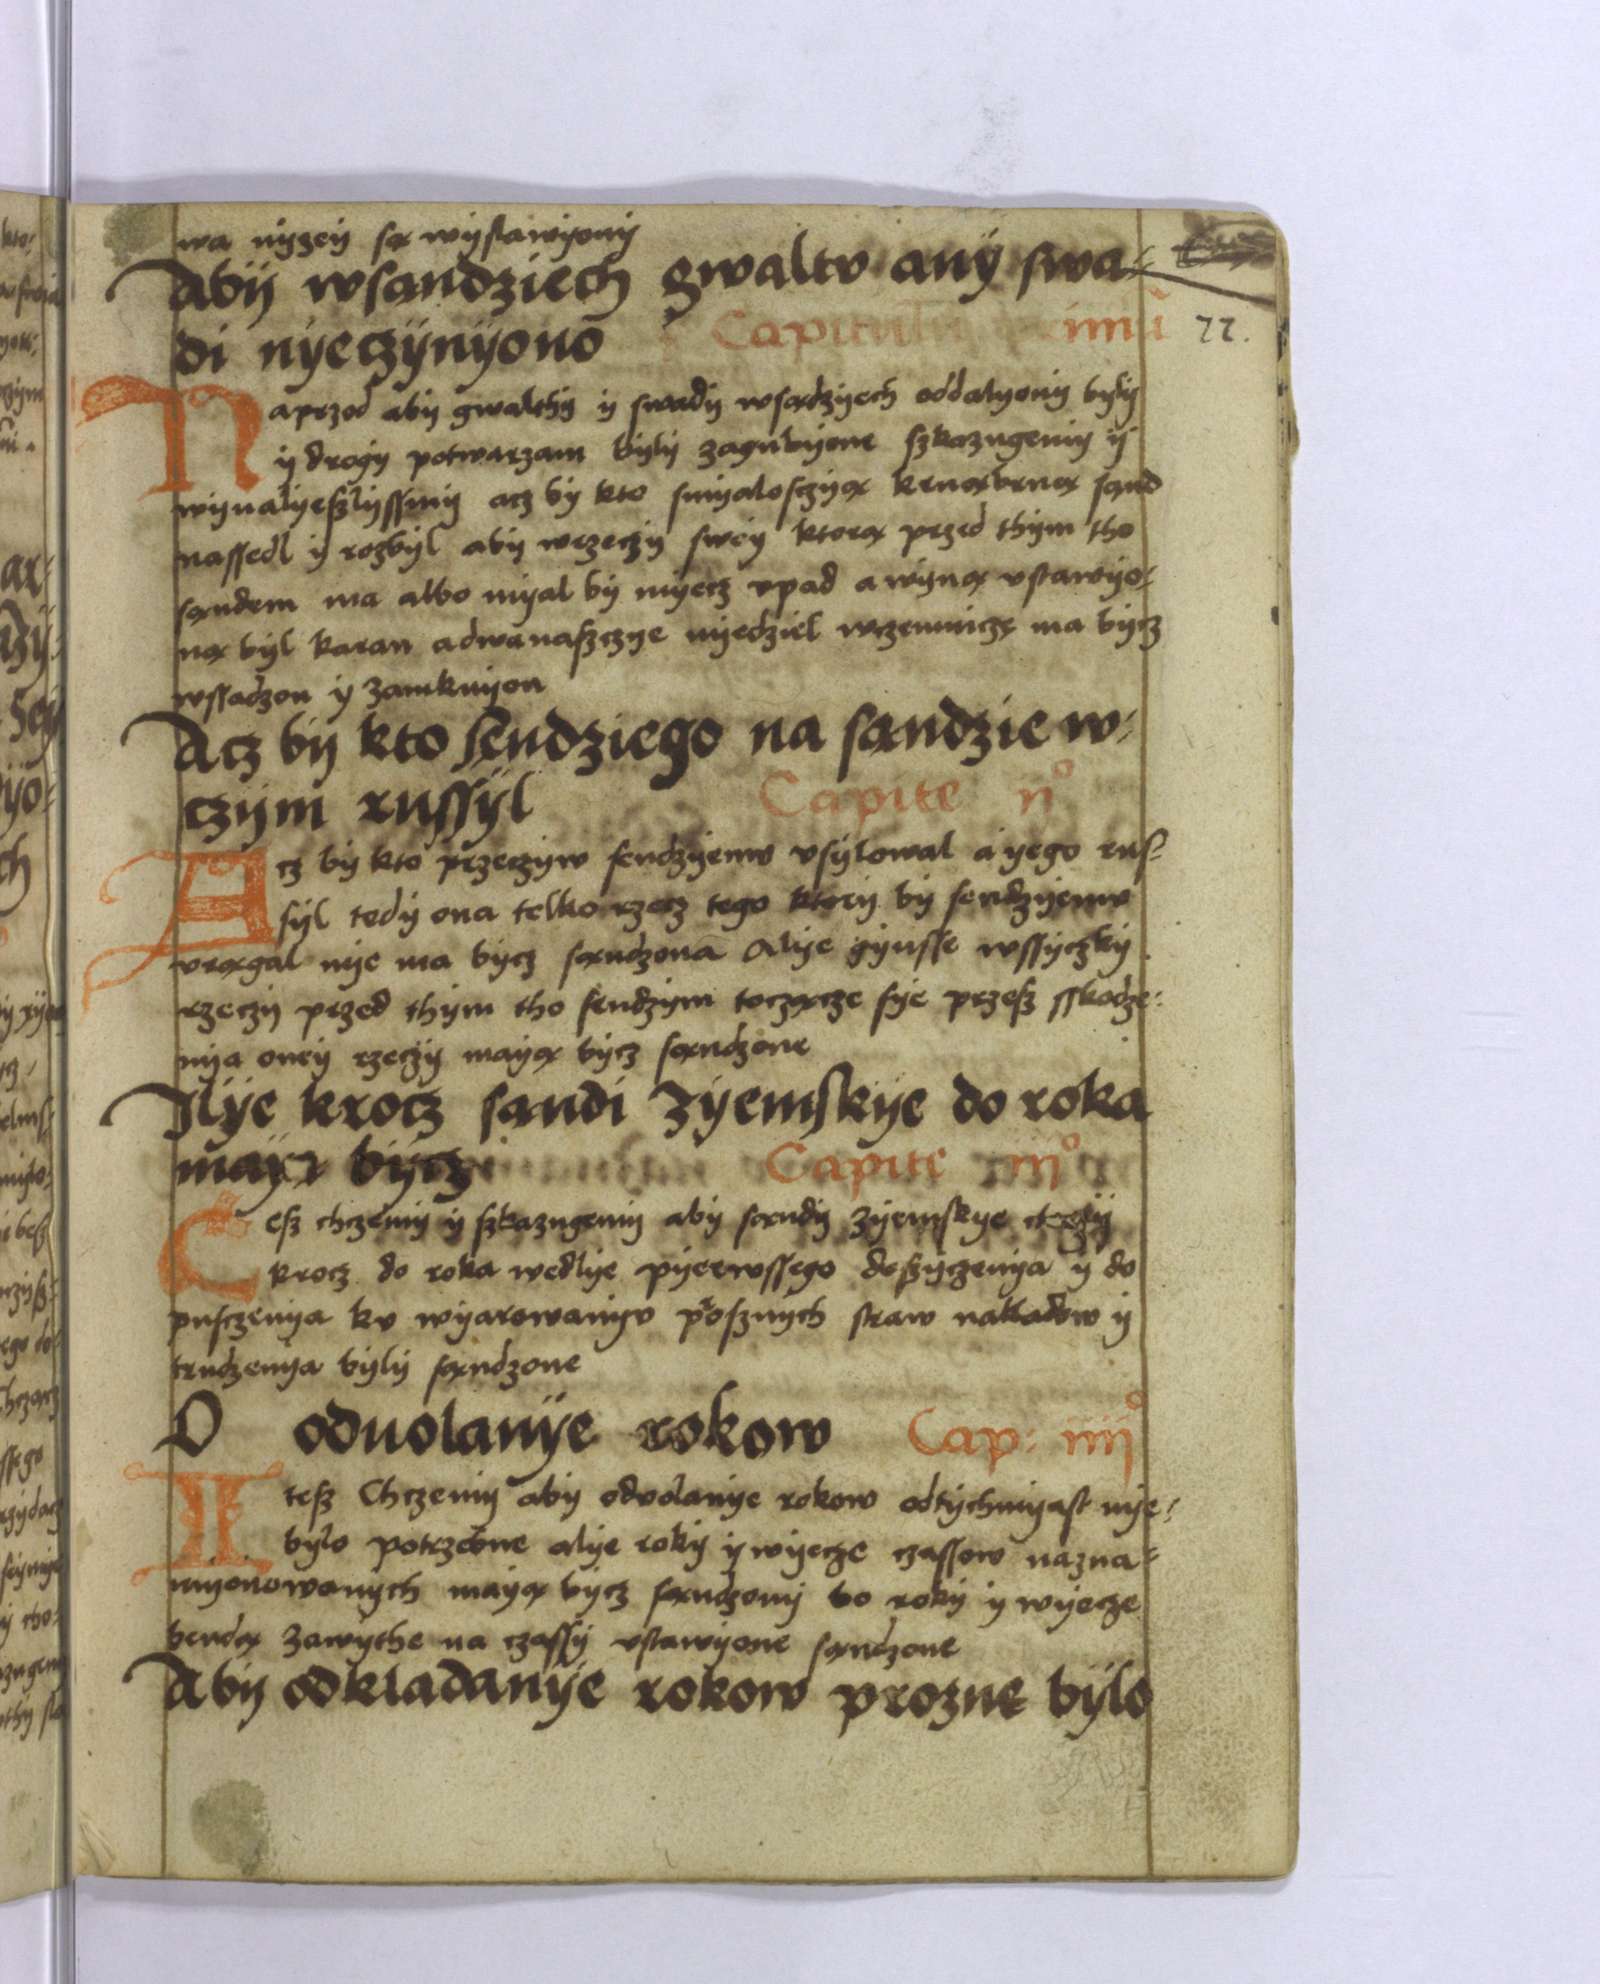 wa nyzey są wystawyony
Aby wsandziech gwaltv any swa-
di nyeczynyono Capitulum
22.
Naprzod aby gwalthy y swady wsądzyech oddalyony byly
y drogy potwarzam byly zagubyone szkazugemy y
wynalyeszlyssmy acz by kto smyalosczyą sąnd
nassedl y rozbyl aby wrzeczy swey ktorą przed thym tho
sąndem ma albo myal by myecz vpad a wyną vstawyo-
ną byl karan adwanaszczye nyedziel wczemnicze ma bycz
wssadzon y zamknyon
Acz by kto sendziego na sąndzie w-
czym russyl Capite ii°
Acz by kto przeczyw sendzyemv vsylowal a yego rus-
syl tedy ona telko rzecz tego ktory by sendzyemv
vrągal nye ma bycz sąndzona Alye gynsse wssyczky
rzeczy przed thym tho sendzym toczącze sye przesz sskodze-
nya oney rzeczy mayą bycz sąndzone
Ilye krocz sandi zyemskye do roka
mayą bycz Capite iii°
Cesz chczemy y szkazugemy aby sąndy zyemskye
krocz do roka wedlye pyerwssego doszyczenya y do
pusczenya kv wyarowanyv prosznych straw nakladow y
trudzenya byly sąndzone
O odvolanye rokow Cap: iiii°
ITesz Chczemy aby odvolanye rokow odtychmyast nye-
bylo potrzebne alye roky y wyecze czassow nazna-
myonowanych mayą bycz sąndzony bo roky y wyecze
bendą zawythe na czassy vstawyone sąndzone
Aby odkladanye rokow prozne bylo